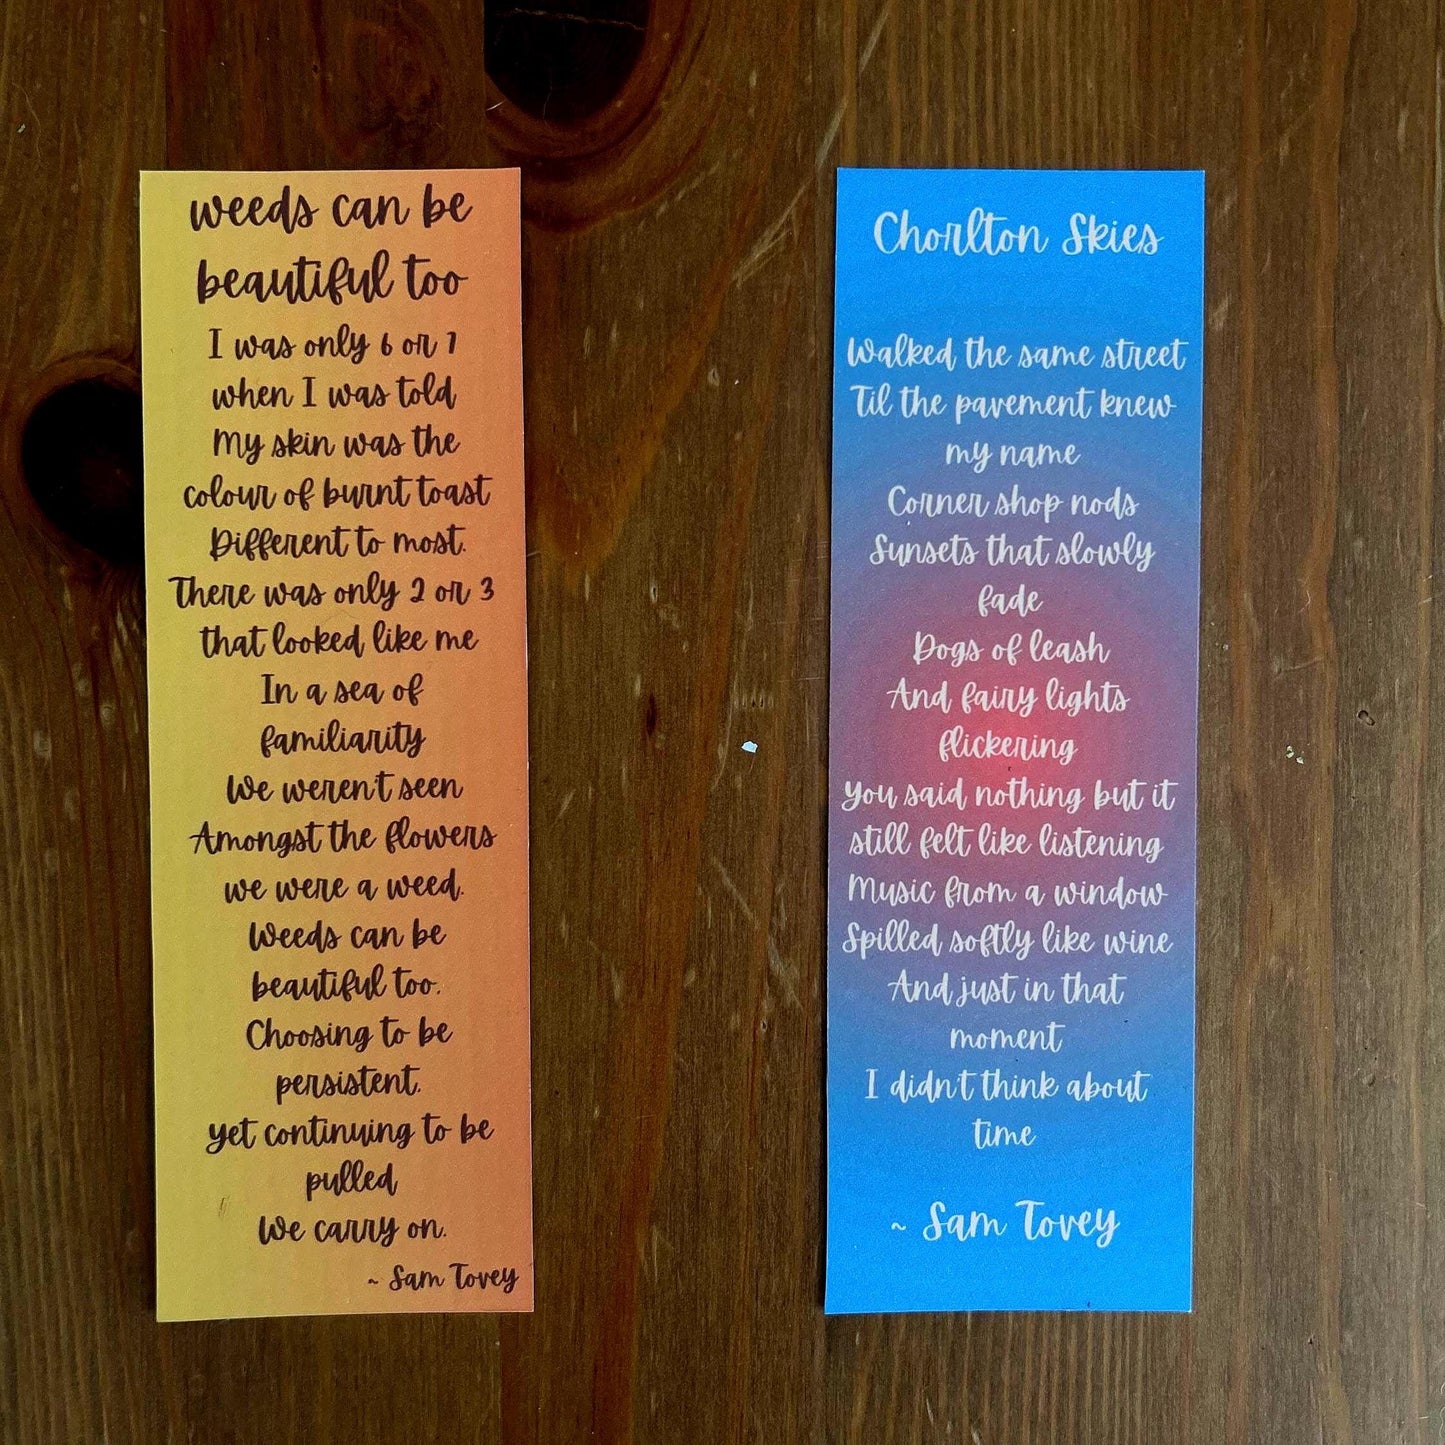 weeds can be
beautiful too
I was only 6 or 7
when I was told
My skin was the
colour of burnt toast
Different to most.
There was only 2 or 3
that looked like me
In a sea of
familiarity
We weren't seen
Amongst the flowers
we were a weed.
Weeds can be
beautiful too.
Choosing to be
persistent.
yet continuing to be
pulled
We carry on.
~ Sam Tovey
Chorlton Skies
Walked the same street
Til the pavement knew
my name
Corner shop nods
Sunsets that slowly
fade
Dogs of leash
And fairy lights
flickering
You said nothing but it
still felt like listening
Music from a window
Spilled softly like wine
And just in that
moment
I didn't think about
time
~ Sam Tovey